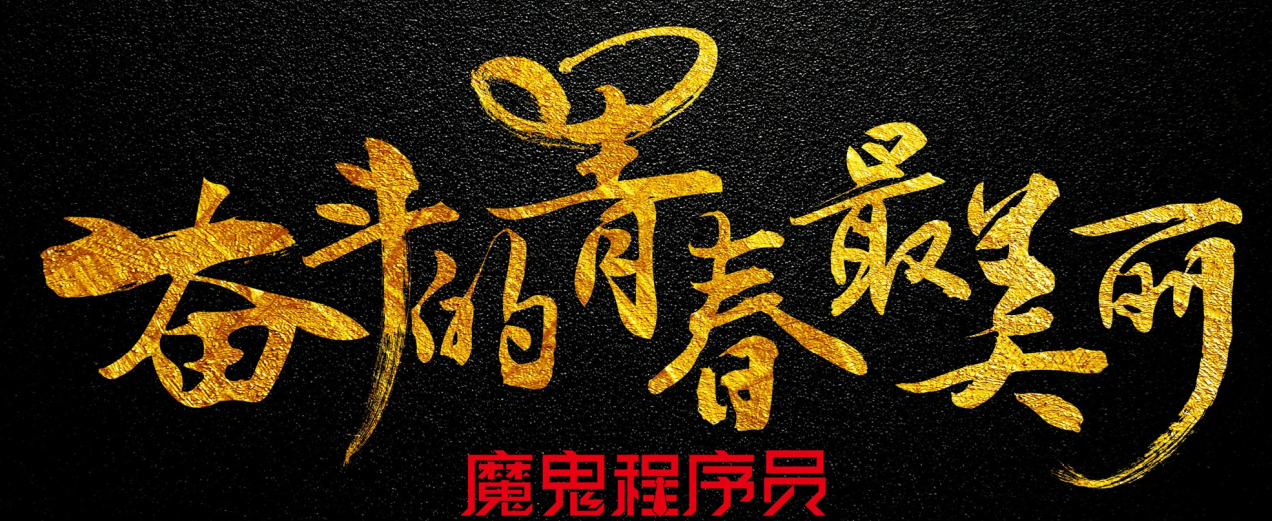 奋斗的青春最美丽
魔鬼程序员